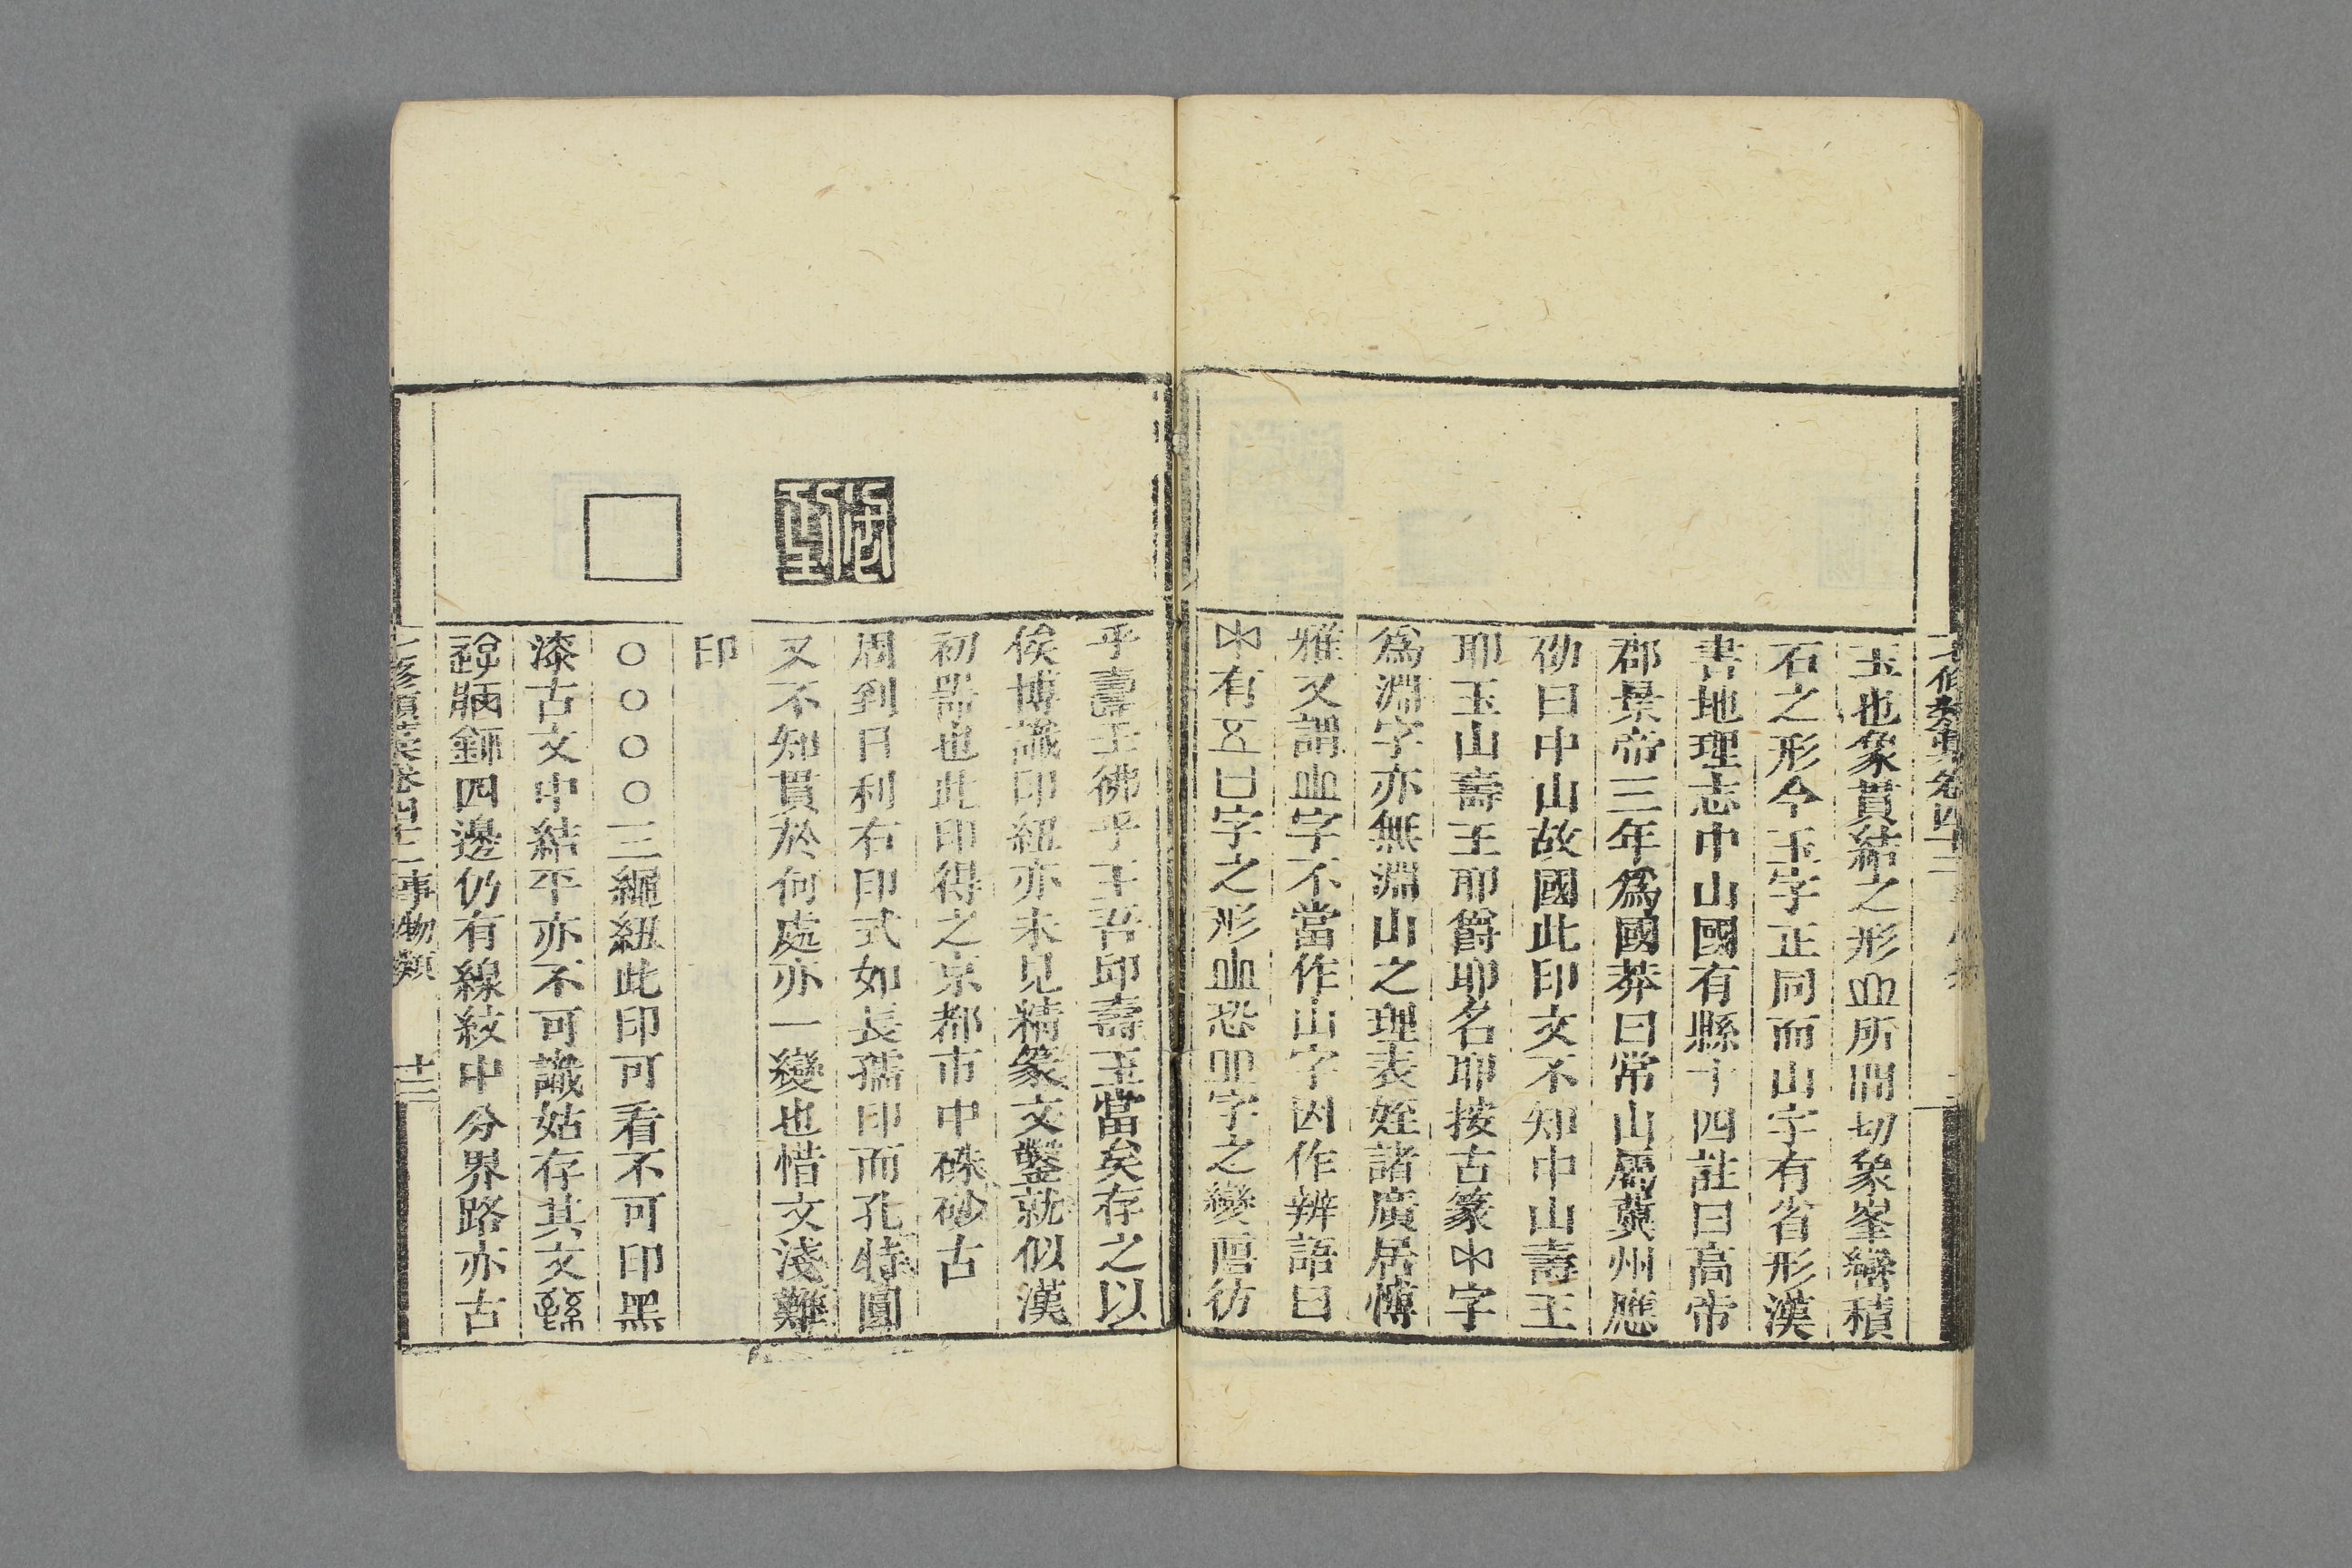 玉也象貫結之形𡴭所間切象峯巒積
石之形今玉字正同而山字有省形漢
書地理志中山國有縣十四註曰高帝
郡景帝三年爲國莽曰常山屬冀州應
劭曰中山故國此印文不知中山壽王
耶玉山壽王耶爵耶名耶按古篆字
爲淵字亦無淵山之理表姪諸廣居博
雅又謂字不當作山字因作辨語曰
有五口字之形恐字之變曆彷
乎壽王彿乎王吾邱壽王當矣存之以
俟博識印紐亦未見精篆文鑿就似漢
初器也此印得之京都市中硃砂古
周到日利右印式如長孺印而孔特圓
又不知貫於何處亦一變也惜文淺難
印
○○○○三繩紐此印可看不可印黑
漆古文中結平亦不可識姑存其文繇
四邊仍有線紋中分界路亦古
七修類藁卷四十二事物類 十三